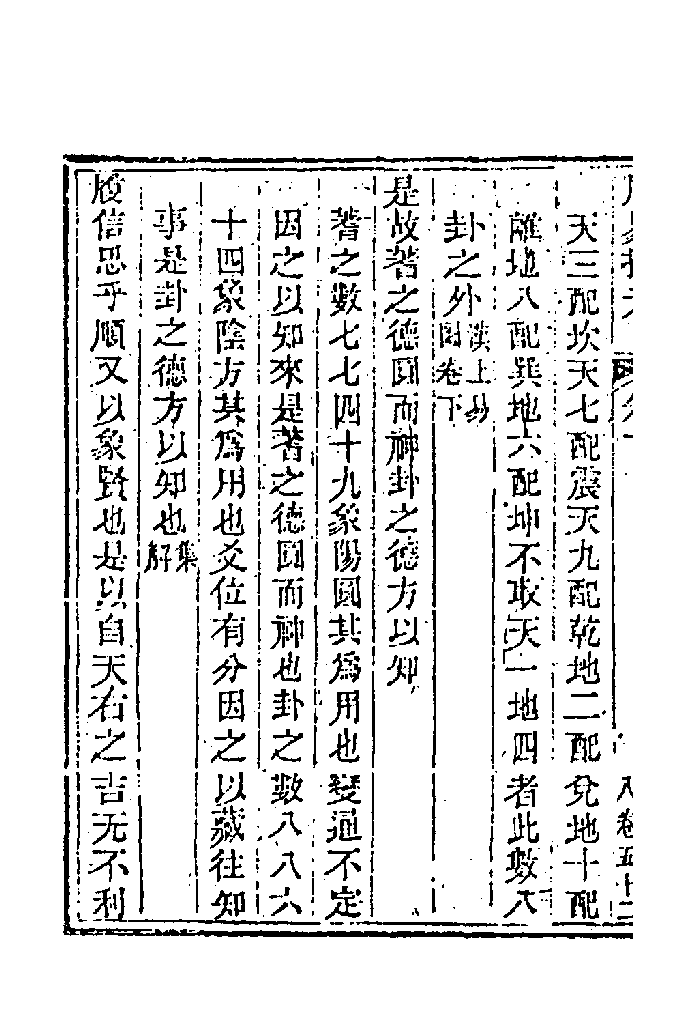 八卷五十二
天三配坎天七配震天九配乾地二配兌地十配
離地八配巽地六配坤不取天一地四者此數八
卦之外漢上易圖卷下
是故蓍之德圓而神卦之德方以知
蓍之數七七四十九象陽圓其爲用也變通不定
因之以知來是蓍之德圓而神也卦之數八八六
十四象陰方其爲用也爻位有分因之以藏往知
事是卦之德方以知也集解
履信思乎順又以象賢也是以自天右之吉无不利